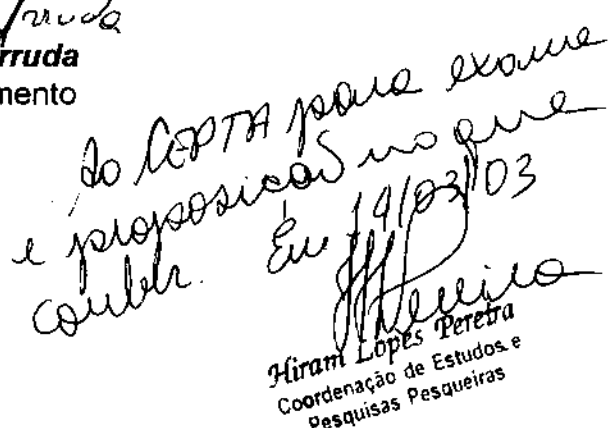 rruda
mento
Ao CEPTA para exame
e proposição no que
couber. Em 19/03/03
Hiram Lopes Pereira
Coordenação de Estudos e
Pesquisas Pesqueiras